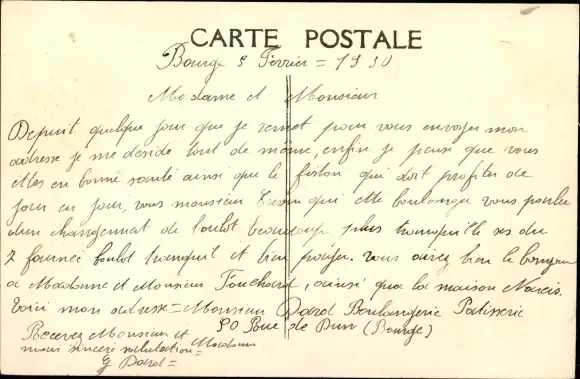 CARTE POSTALE
Bourge 5 Février = 1930
Madame et Monsieur
Depuit quelque jour que je remet pour vous envoyer mon
adresse je me déside tout de même, enfin je pense que vous
êttes en bonne santé ainsi que le fiston qui doit profiter de
jour en jour, vous monsieur qui ette boulanger vous parler
d'un changement de boulot beaucoup plus tranquille ses du
2 fournée boulot tranquil et bien payer. Vous direz bien le bonjour
a Madame et Monsieur Fouchard, ainsi que la maison Narcis.
Voici mon adresse = Monsieur Darol Boulangerie Patisserie
50 Rue de Dun (Bourge)
Recevez Monsieur et Madame
mais sincère salutation =
G Darol =